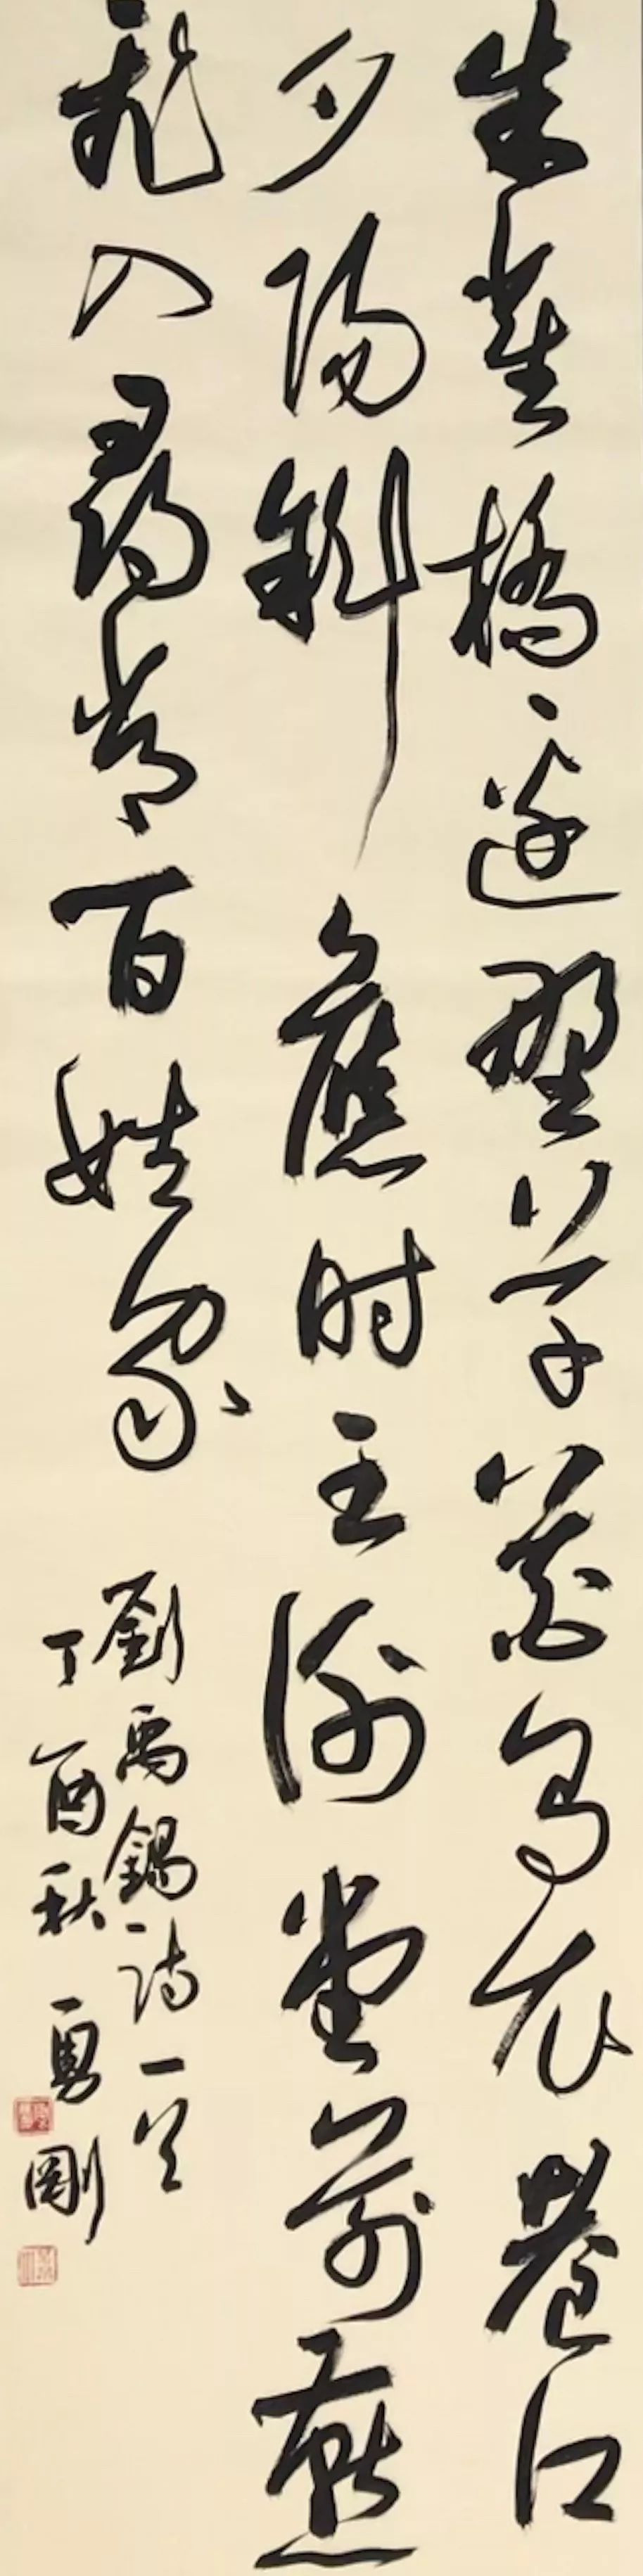 朱雀橋邊野草花烏衣巷口
夕陽斜舊時王謝堂前燕
飛入尋常百姓家
劉禹錫詩一首
丁酉秋勇剛